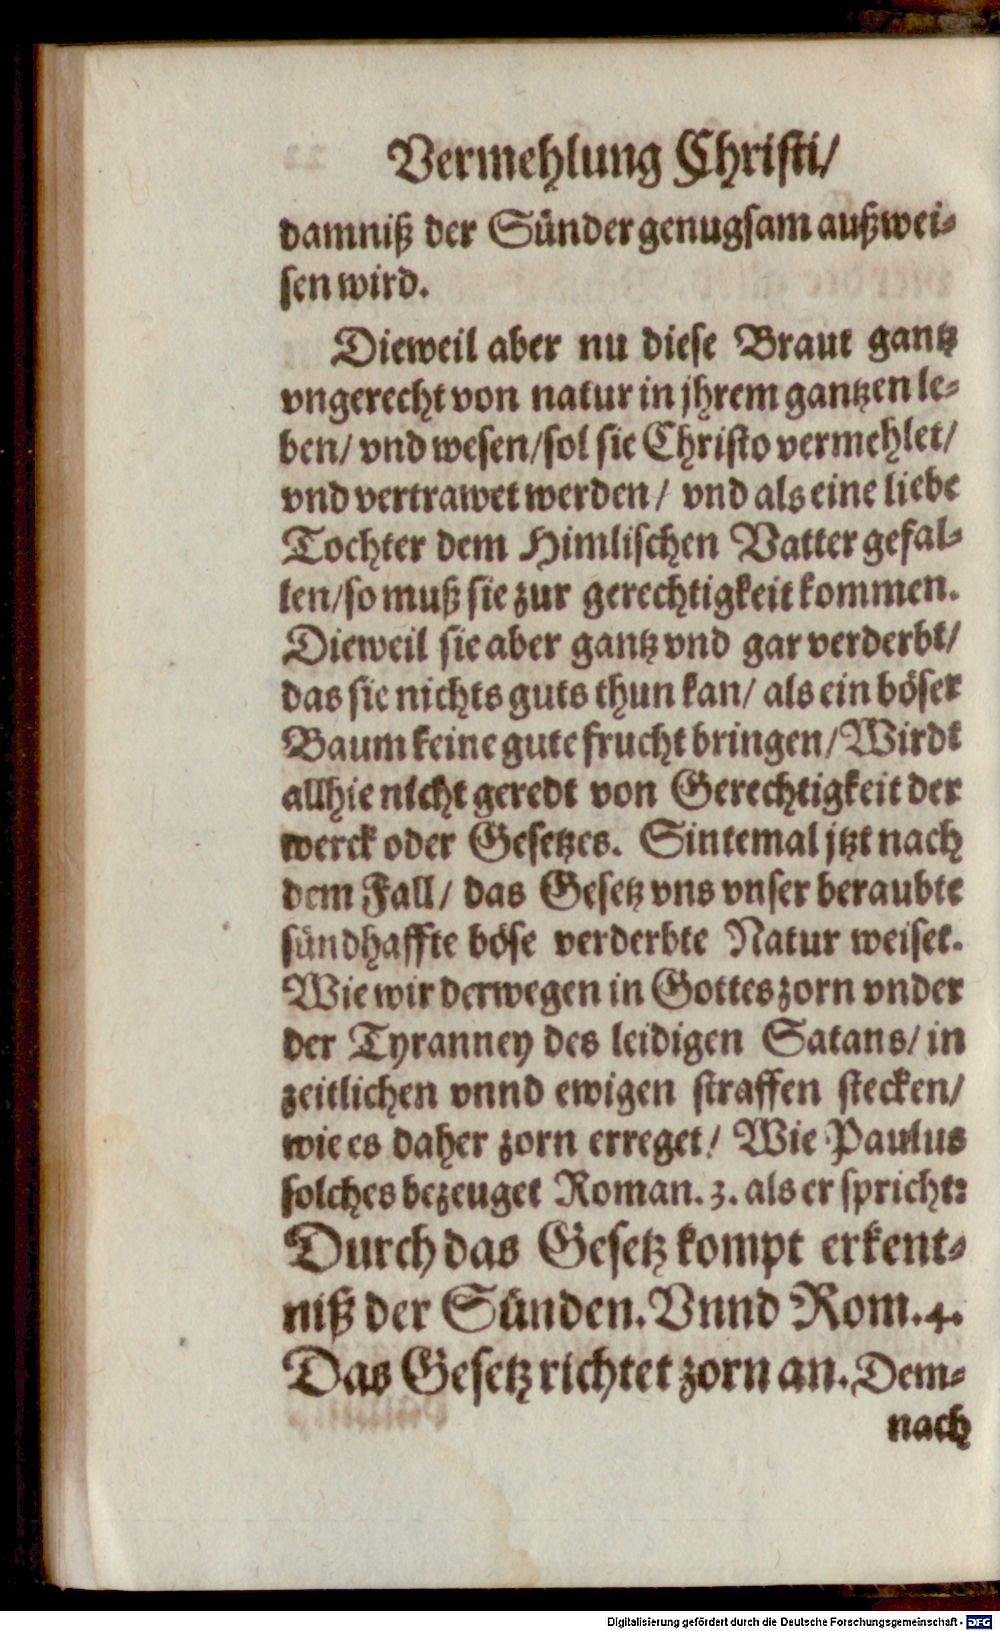 Vermehlung Christi/
damniß der Sünder genugsam außwei-
sen wird.
Dieweil aber nu diese Braut gantz
vngerecht von natur in jhrem gantzen le-
ben/ vnd wesen/ sol sie Christo vermehlet/
vnd vertrawet werden/ vnd als eine liebe
Tochter dem Himlischen Vatter gefal-
len/ so muß sie zur gerechtigkeit kommen.
Dieweil sie aber gantz vnd gar verderbt/
das sie nichts guts thun kan/ als ein böser
Baum keine gute frucht bringen/ Wirdt
allhie nicht geredt von Gerechtigkeit der
werck oder Gesetzes. Sintemal jtzt nach
dem Fall/ das Gesetz vns vnser beraubte
sündhaffte böse verderbte Natur weiset.
Wie wir derwegen in Gottes zorn vnder
der Tyranney des leidigen Satans/ in
zeitlichen vnnd ewigen straffen stecken/
wie es daher zorn erreget/ Wie Paulus
solches bezeuget Roman. 3. als er spricht:
Durch das Gesetz kompt erkent-
niß der Sünden. Vnnd Rom. 4.
Das Gesetz richtet zorn an. Dem-
nach
Digitalisierung gefördert durch die Deutsche Forschungsgemeinschaft - DFG